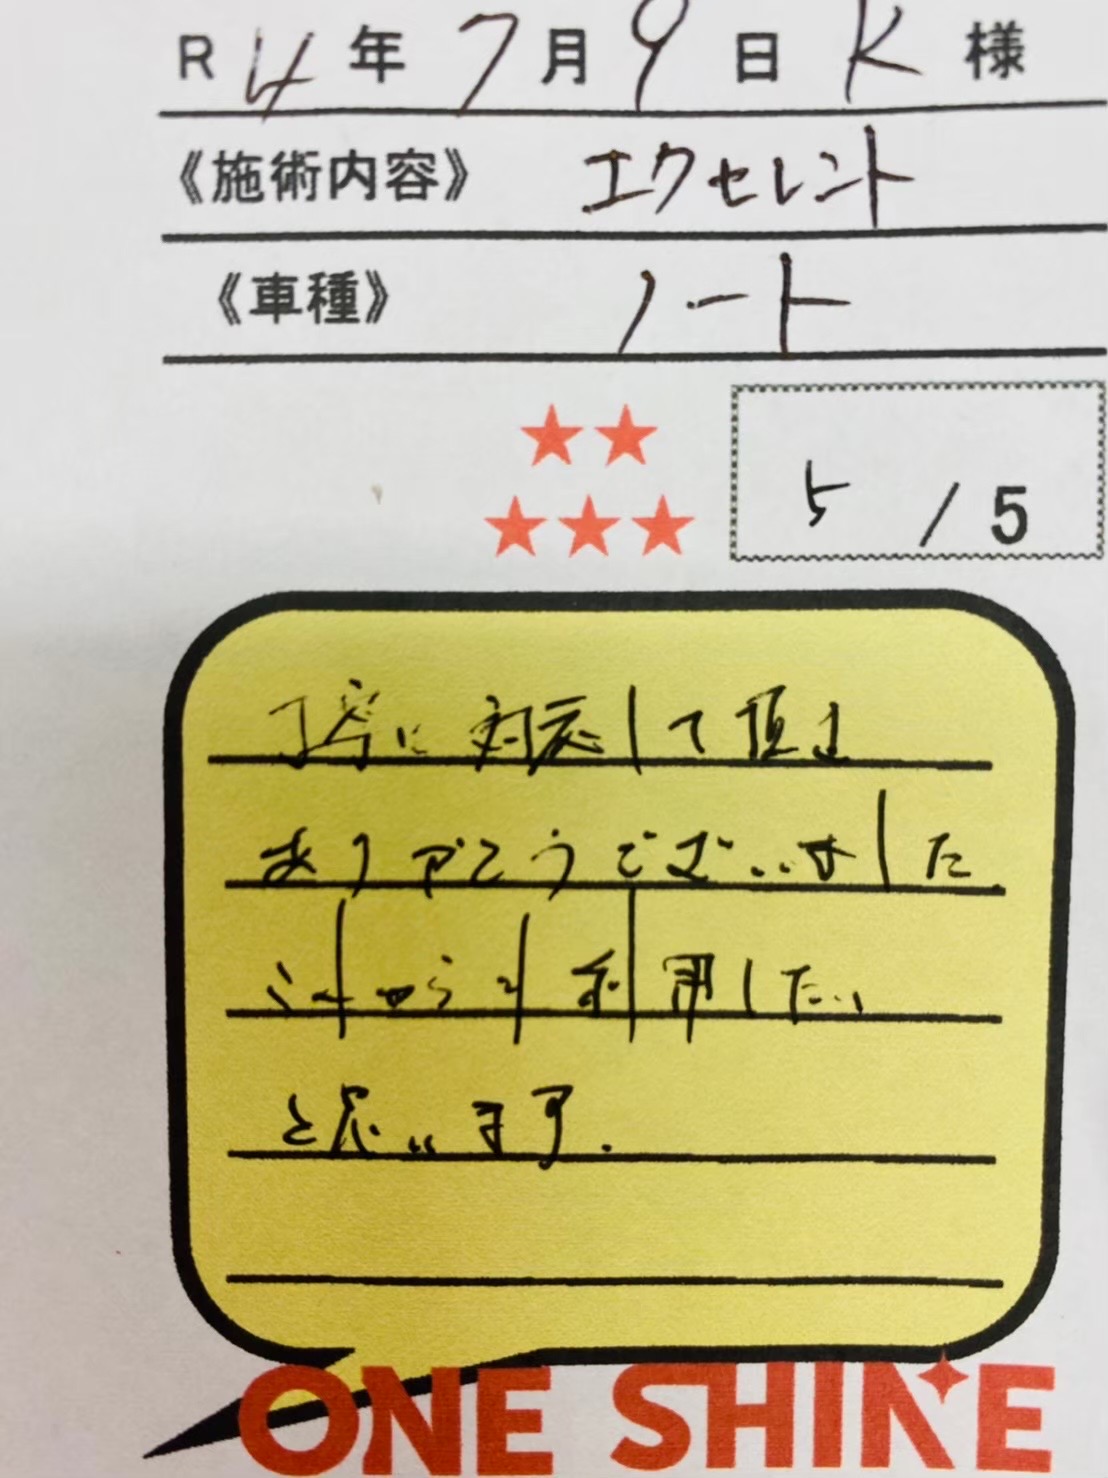 R 4 年 7 月 9 日 K 様
《施術内容》 エクセレント
《車種》 ノート
5 / 5
丁寧に対応して頂き
ありがとうございました.
これからも利用したい
と思います.
ONE SHINE